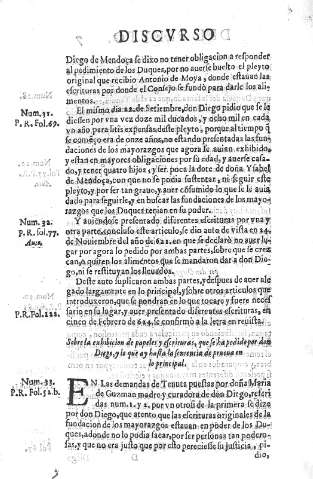 DISCVRSO
Diego de Mendoça se dixo no tener obligacion a responder
al pedimiento de los Duques, por no auerse buelto el pleyto
original que recibio Antonio de Moya, donde estauã las
escrituras por donde el Consejo se fundò para darle los ali-
mentos.
Num. 31.
P. R. Fol. 69.
El mismo dia 22. de Setiembre, don Diego pidio que se le
diessen por vna vez doze mil ducados, y ocho mil en cada
vn año, para litis expensas deste pleyto, porque al tiempo q̃
se començò era de onze años, no estando presentadas las fun-
daciones de los mayorazgos que agora se auian exhibido,
y estar en mayores obligaciones por su edad, y auerse casa-
do, y tener quatro hijos, y ser poca la dote de doña Ysabel
de Mendoça, con que no se podia sustentar, ni seguir este
pleyto, y por ser tan graue, y auer cõsumido lo que se le auia
dado para seguirle, y en buscar las fundaciones de los mayo-
razgos que los Duques tenian en su poder.
Num. 32.
P. R. fol. 77.
Y auiendose presentado diferentes escrituras por vna y
otra parte, concluso este articulo, se dio auto de vista en 24.
de Nouiembre del año de 621. en que se declarò no auer lu-
gar por agora lo pedido por ambas partes, sobre que se crez-
can, ò quiten los alimentos que se mandaron dar a don Die-
go, ni se restituyan los lleuados.
Deste auto suplicaron ambas partes, y despues de auer ale-
gado largamente en lo principal, y sobre otros articulos que
introduxeron, que se pondran en lo que tocare, y fuere neces-
sario en su lugar, y auer presentado diferentes escrituras, en
P. R. Fol. 122.
cinco de Febrero de 624. se confirmò a la letra en reuista.
Sobre la exhibicion de papeles y escrituras, que se ha pedido por don
Diego, y lo que ay hasta la sentencia de prueua en
lo principal.
Num. 33.
P. R. Fol. 52. b.
EN Las demandas de Tenuta puestas por doña Maria
de Guzman madre y curadora de don Diego, referi-
das num. 1. y 2. por vn otrosi de la primera se dize
por don Diego, que atento que las escrituras originales de la
fundacion de los mayorazgos estauan en poder de los Du-
ques, adonde no lo podia sacar, por ser personas tan podero-
sas, y que no era justo que por esto pereciesse su justicia, pi-
dio,